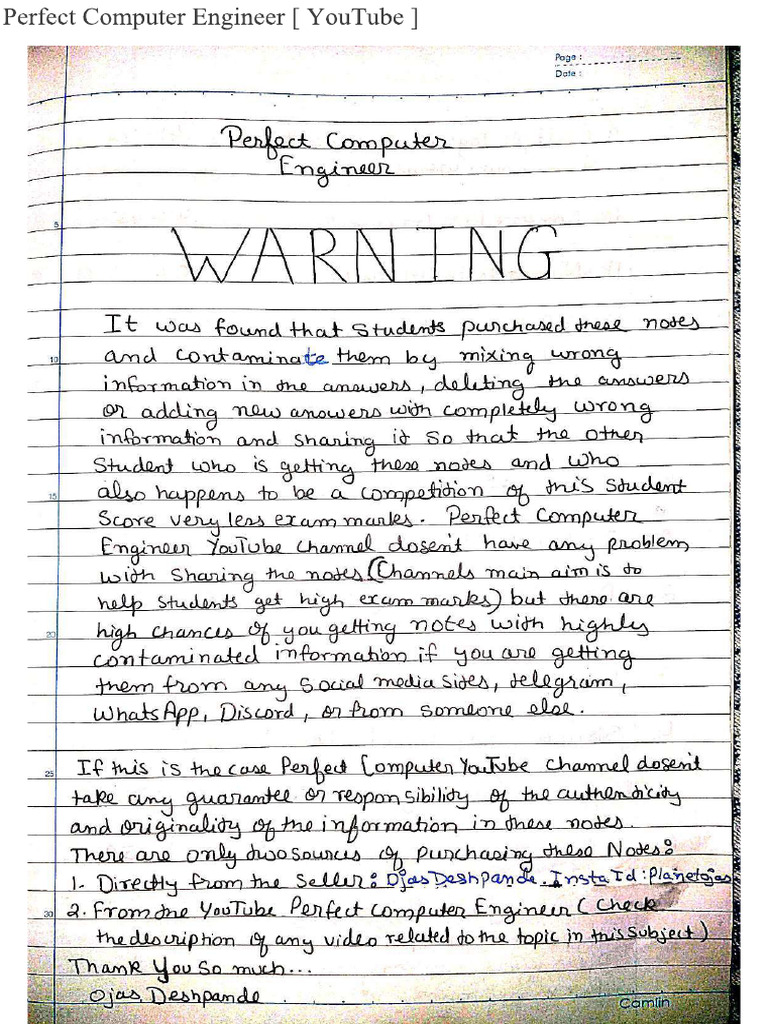 Perfect Computer Engineer [ YouTube ]
Page :
Date :
Perfect Computer
Engineer
5
WARNING
It was found that Students purchased these notes
10
and contaminate them by mixing wrong
information in the answers, deleting the answers
or adding new answers with completely wrong
information and sharing it so that the other
Student who is getting these notes and who
15
also happens to be a competition of this student
Score very less exam marks. Perfect Computer
Engineer YouTube channel dosen't have any problem
with sharing the notes (Channels main aim is to
help students get high exam marks) but there are
20
high chances of you getting notes with highly
contaminated information if you are getting
them from any Social media sites, telegram,
WhatsApp, Discord, or from someone else.
25
If this is the case Perfect Computer YouTube channel dosen't
take any guarantee or responsibility of the authenticity
and originality of the information in these notes.
There are only two sources of purchasing these Notes:
1. Directly from the Seller: Ojas Deshpande. Insta Id: Planetojas
30
2. From the YouTube Perfect Computer Engineer (Check
the description of any video related to the topic in this subject)
Thank You So much...
Ojas Deshpande
Camlin